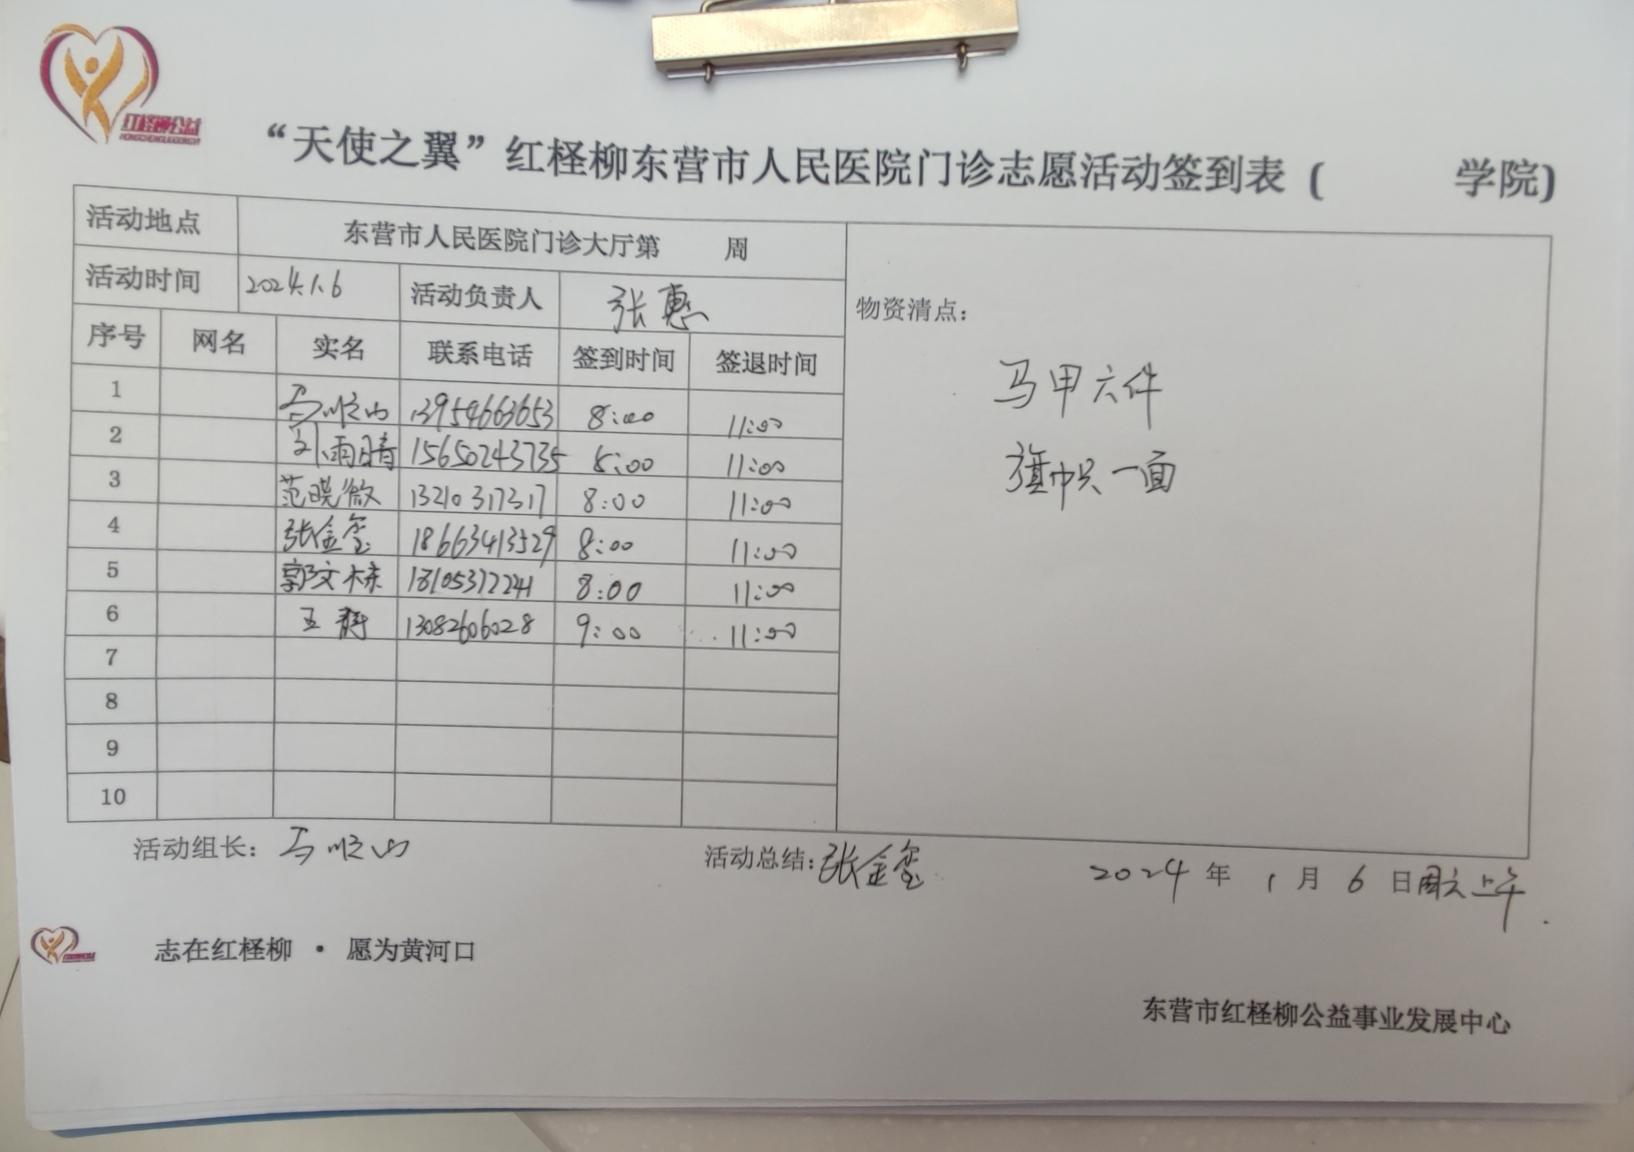 红柽柳公益
“天使之翼”红柽柳东营市人民医院门诊志愿活动签到表 ( 学院)
活动地点 东营市人民医院门诊大厅第 周
活动时间 2024.1.6 活动负责人 张惠
物资清点：
序号 网名 实名 联系电话 签到时间 签退时间
马甲六件
旗帜一面
1 马顺山 13954663653 8:00 11:00
2 刘雨晴 15650243735 8:00 11:00
3 范晓微 13210317317 8:00 11:00
4 张金玺 18663413529 8:00 11:00
5 郭文栋 18105372241 8:00 11:00
6 王静 13082606028 9:00 11:00
7
8
9
10
活动组长：马顺山 活动总结：张金玺 2024 年 1 月 6 日周六上午.
志在红柽柳 · 愿为黄河口
东营市红柽柳公益事业发展中心